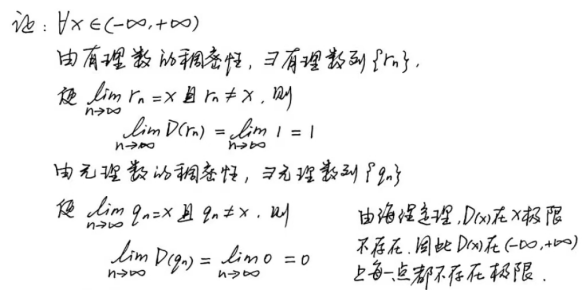 证：∀x∈(-∞,+∞)
由有理数的稠密性，∃有理数列{rn}，
使 lim n→∞ rn=x 且 rn≠x，则
lim n→∞ D(rn) = lim n→∞ 1 = 1
由无理数的稠密性，∃无理数列{qn}
使 lim n→∞ qn=x 且 qn≠x，则
lim n→∞ D(qn) = lim n→∞ 0 = 0
由海涅定理，D(x)在x极限
不存在，因此D(x)在(-∞,+∞)
上每一点都不存在极限．